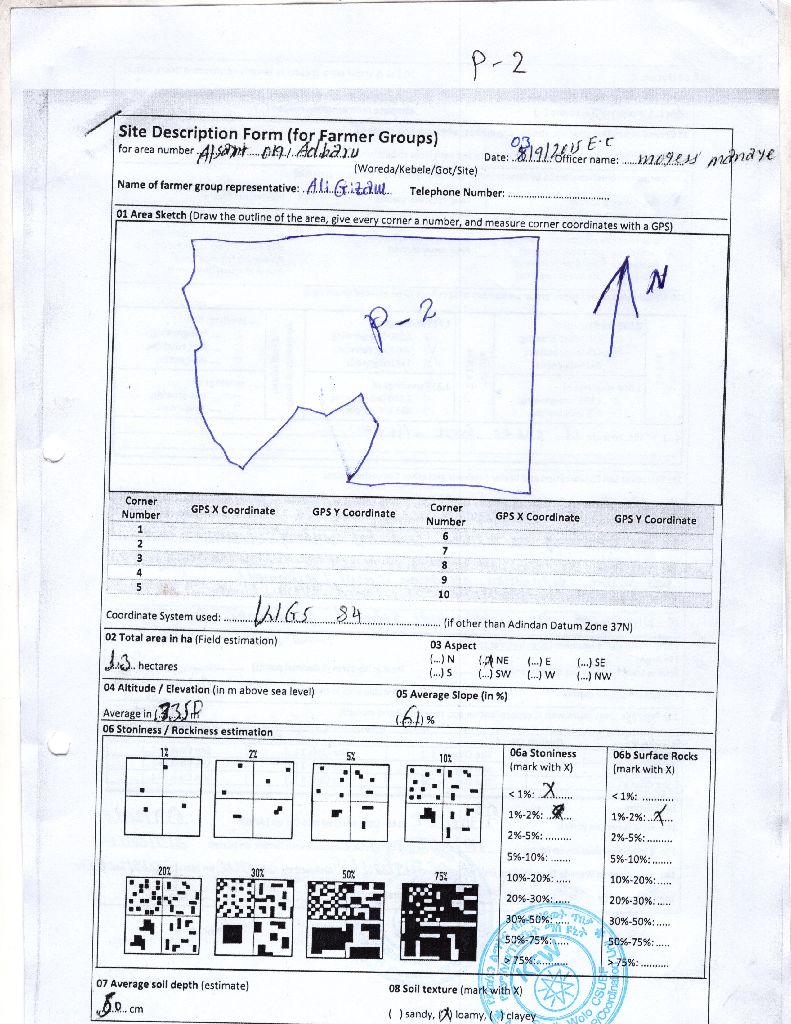 P-2
Site Description Form (for Farmer Groups)
for area number Adbaru Date: 03/9/2015 E.C Officer name: mogess manaye
(Woreda/Kebele/Got/Site)
Name of farmer group representative: Ali Gizaw Telephone Number:
01 Area Sketch (Draw the outline of the area, give every corner a number, and measure corner coordinates with a GPS)
P-2
N
Corner Number GPS X Coordinate GPS Y Coordinate Corner Number GPS X Coordinate GPS Y Coordinate
1 6
2 7
3 8
4 9
5 10
Coordinate System used: WGS 84 (if other than Adindan Datum Zone 37N)
02 Total area in ha (Field estimation) 03 Aspect
13 hectares (...) N (X) NE (...) E (...) SE
(...) S (...) SW (...) W (...) NW
04 Altitude / Elevation (in m above sea level) 05 Average Slope (in %)
Average in (61) %
06 Stoniness / Rockiness estimation
1% 2% 5% 10%
20% 30% 50% 75%
06a Stoniness 06b Surface Rocks
(mark with X) (mark with X)
< 1%: X < 1%: ...........
1%-2%: 1%-2%: X
2%-5%: ....... 2%-5%: .......
5%-10%: ....... 5%-10%: .......
10%-20%: ..... 10%-20%: .....
20%-30%: ..... 20%-30%: .....
30%-50%: ..... 30%-50%: .....
50%-75%: ..... 50%-75%: .....
> 75%: .......... > 75%: ..........
KFW
07 Average soil depth (estimate) 08 Soil texture (mark with X)
50 cm ( ) sandy, (X) loamy, ( ) clayey